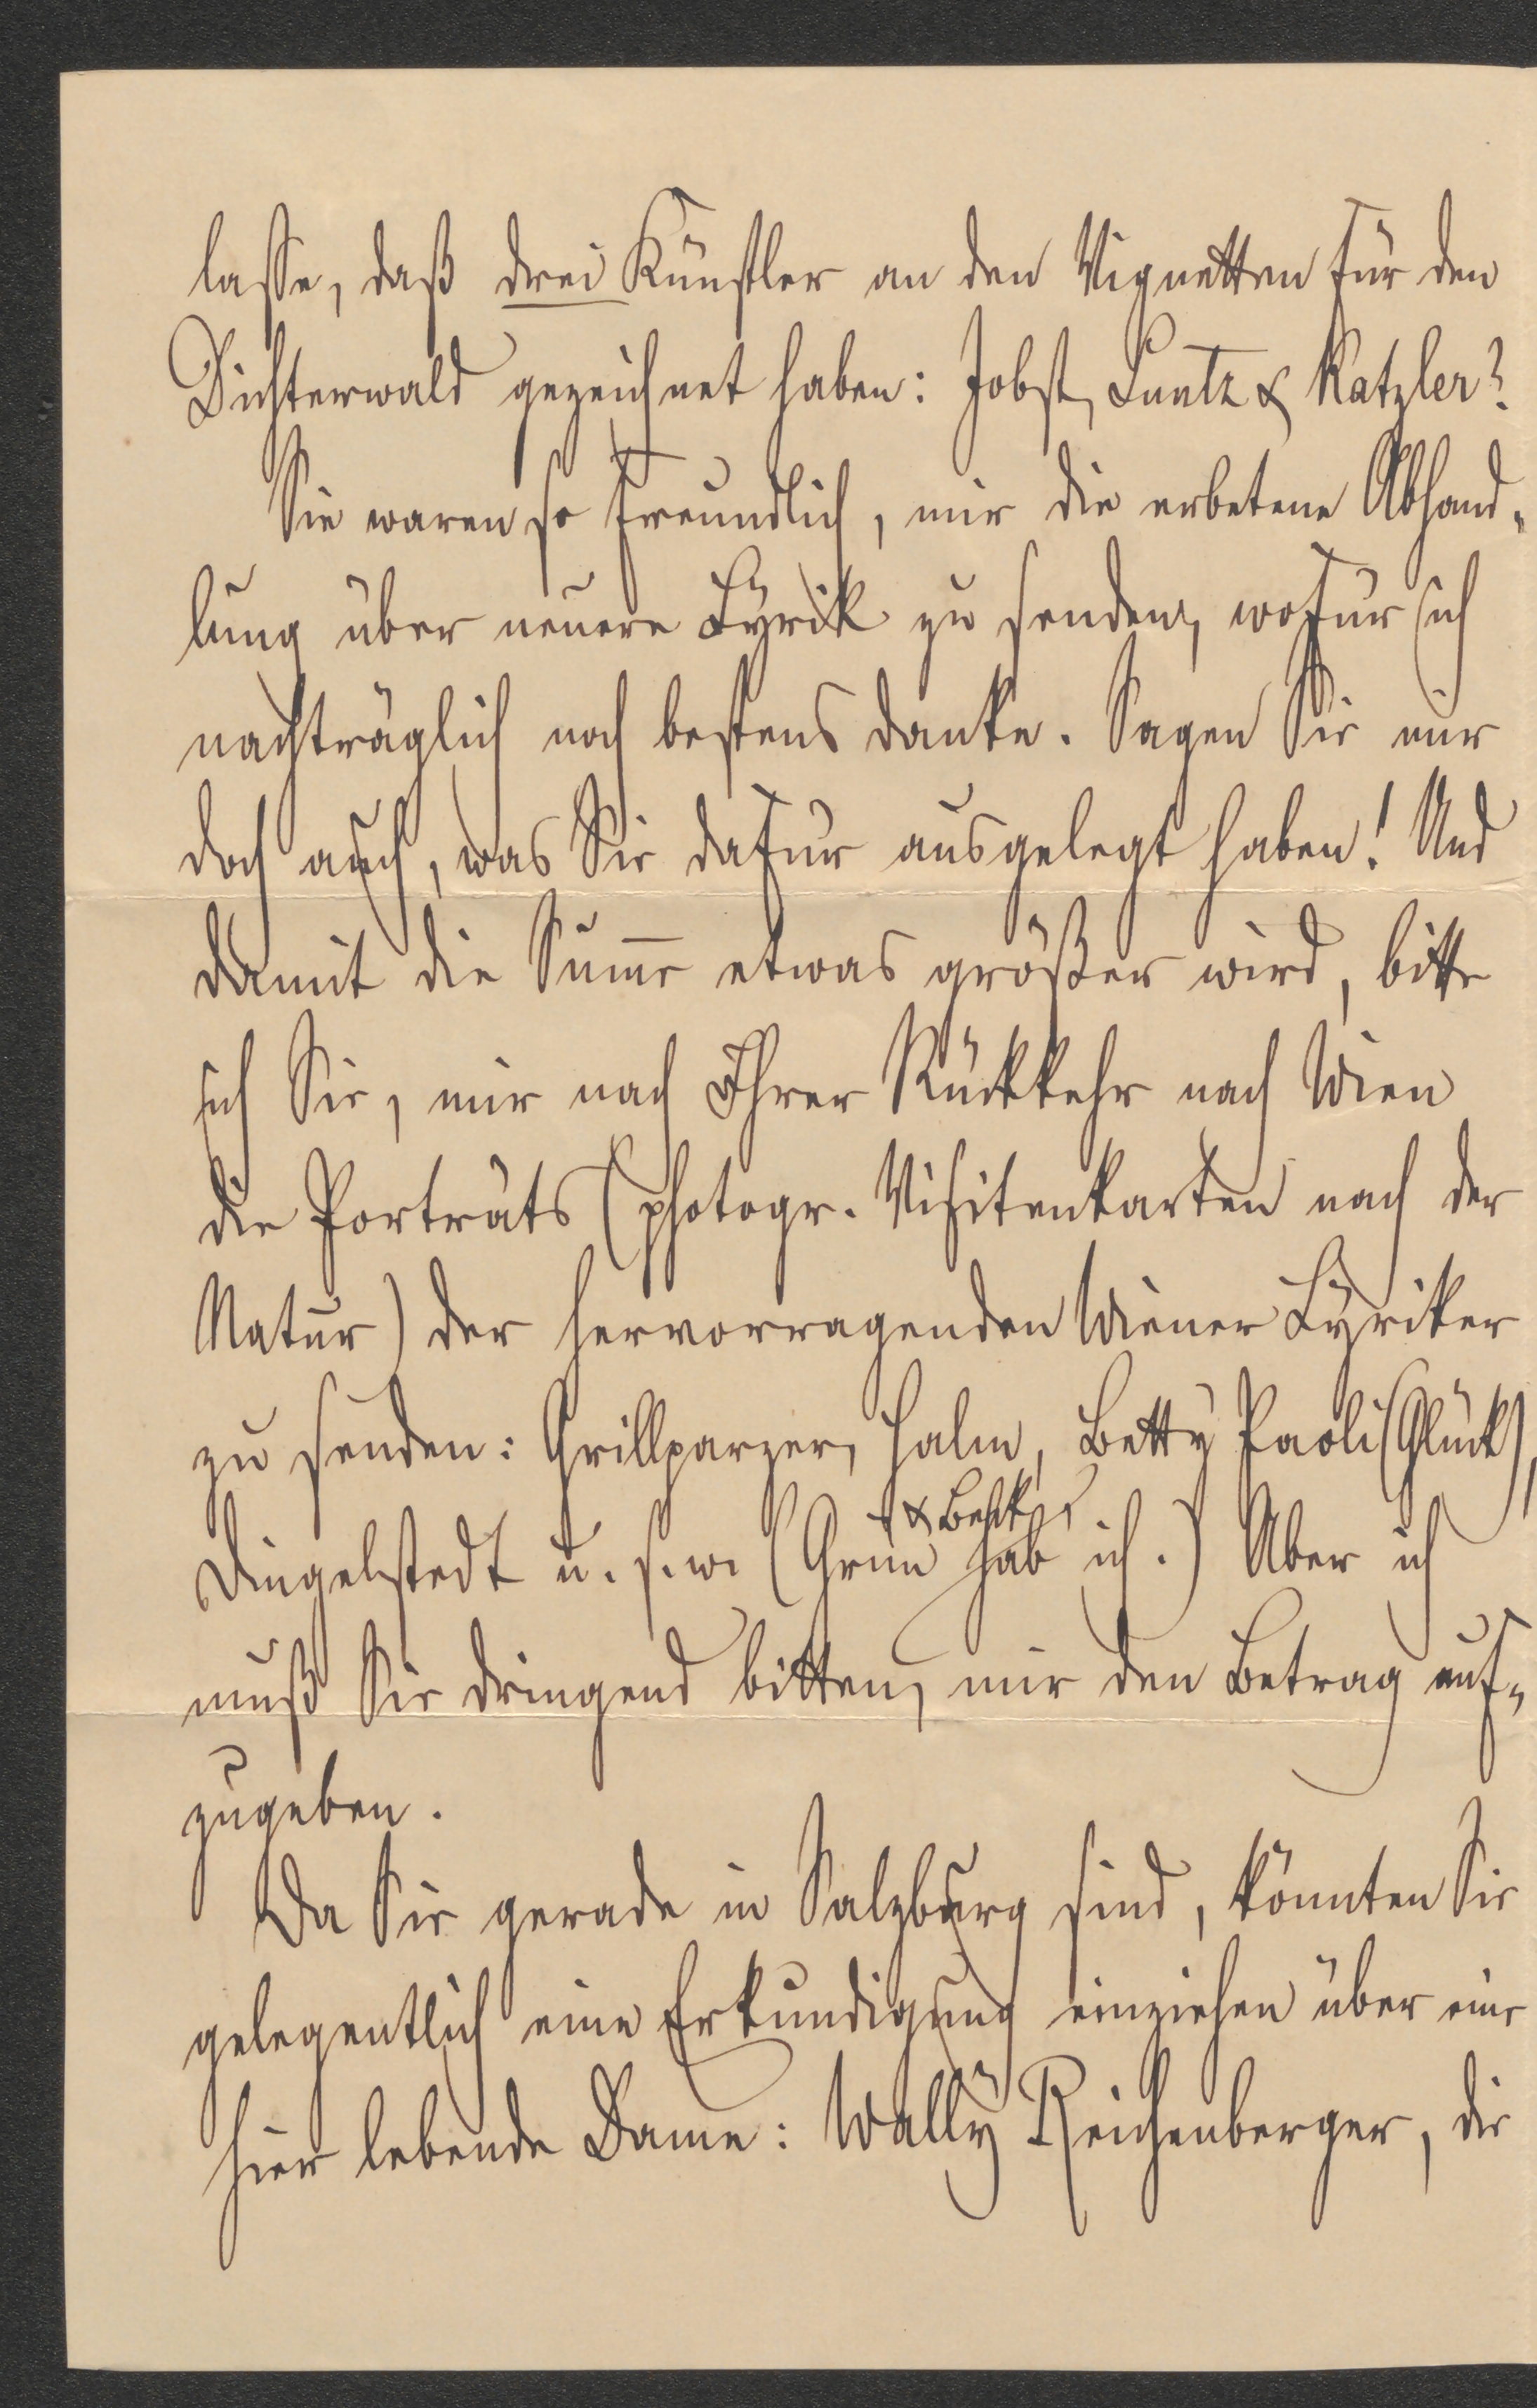 lasse, daß drei Künstler an den Vignetten für den
Dichterwald gezeichnet haben: Jobst, Luntz & Katzler?
Sie waren so freundlich, mir die erbetene Abhand-
lung über neuere Lyrik zu senden, wofür ich
nachträglich noch bestens danke. Sagen Sie mir
doch auch, was Sie dafür ausgelegt haben! Und
damit die Sum̅e etwas größer wird, bitte
ich Sie, mir nach Ihrer Rückkehr nach Wien
die Porträts (photogr. Visitenkarten nach der
Natur) der hervorragenden Wiener Lyriker
zu senden: Grillparzer, Halm, Betty Paoli (Glück),
Dingelstedt u. s. w. (Grün & Beck hab ich.) Aber ich
muß Sie dringend bitten, mir den Betrag auf-
zugeben.
Da Sie gerade in Salzburg sind, könnten Sie
gelegentlich eine Erkundigung einziehen über eine
hier lebende Dame: Wally Reichenberger, die